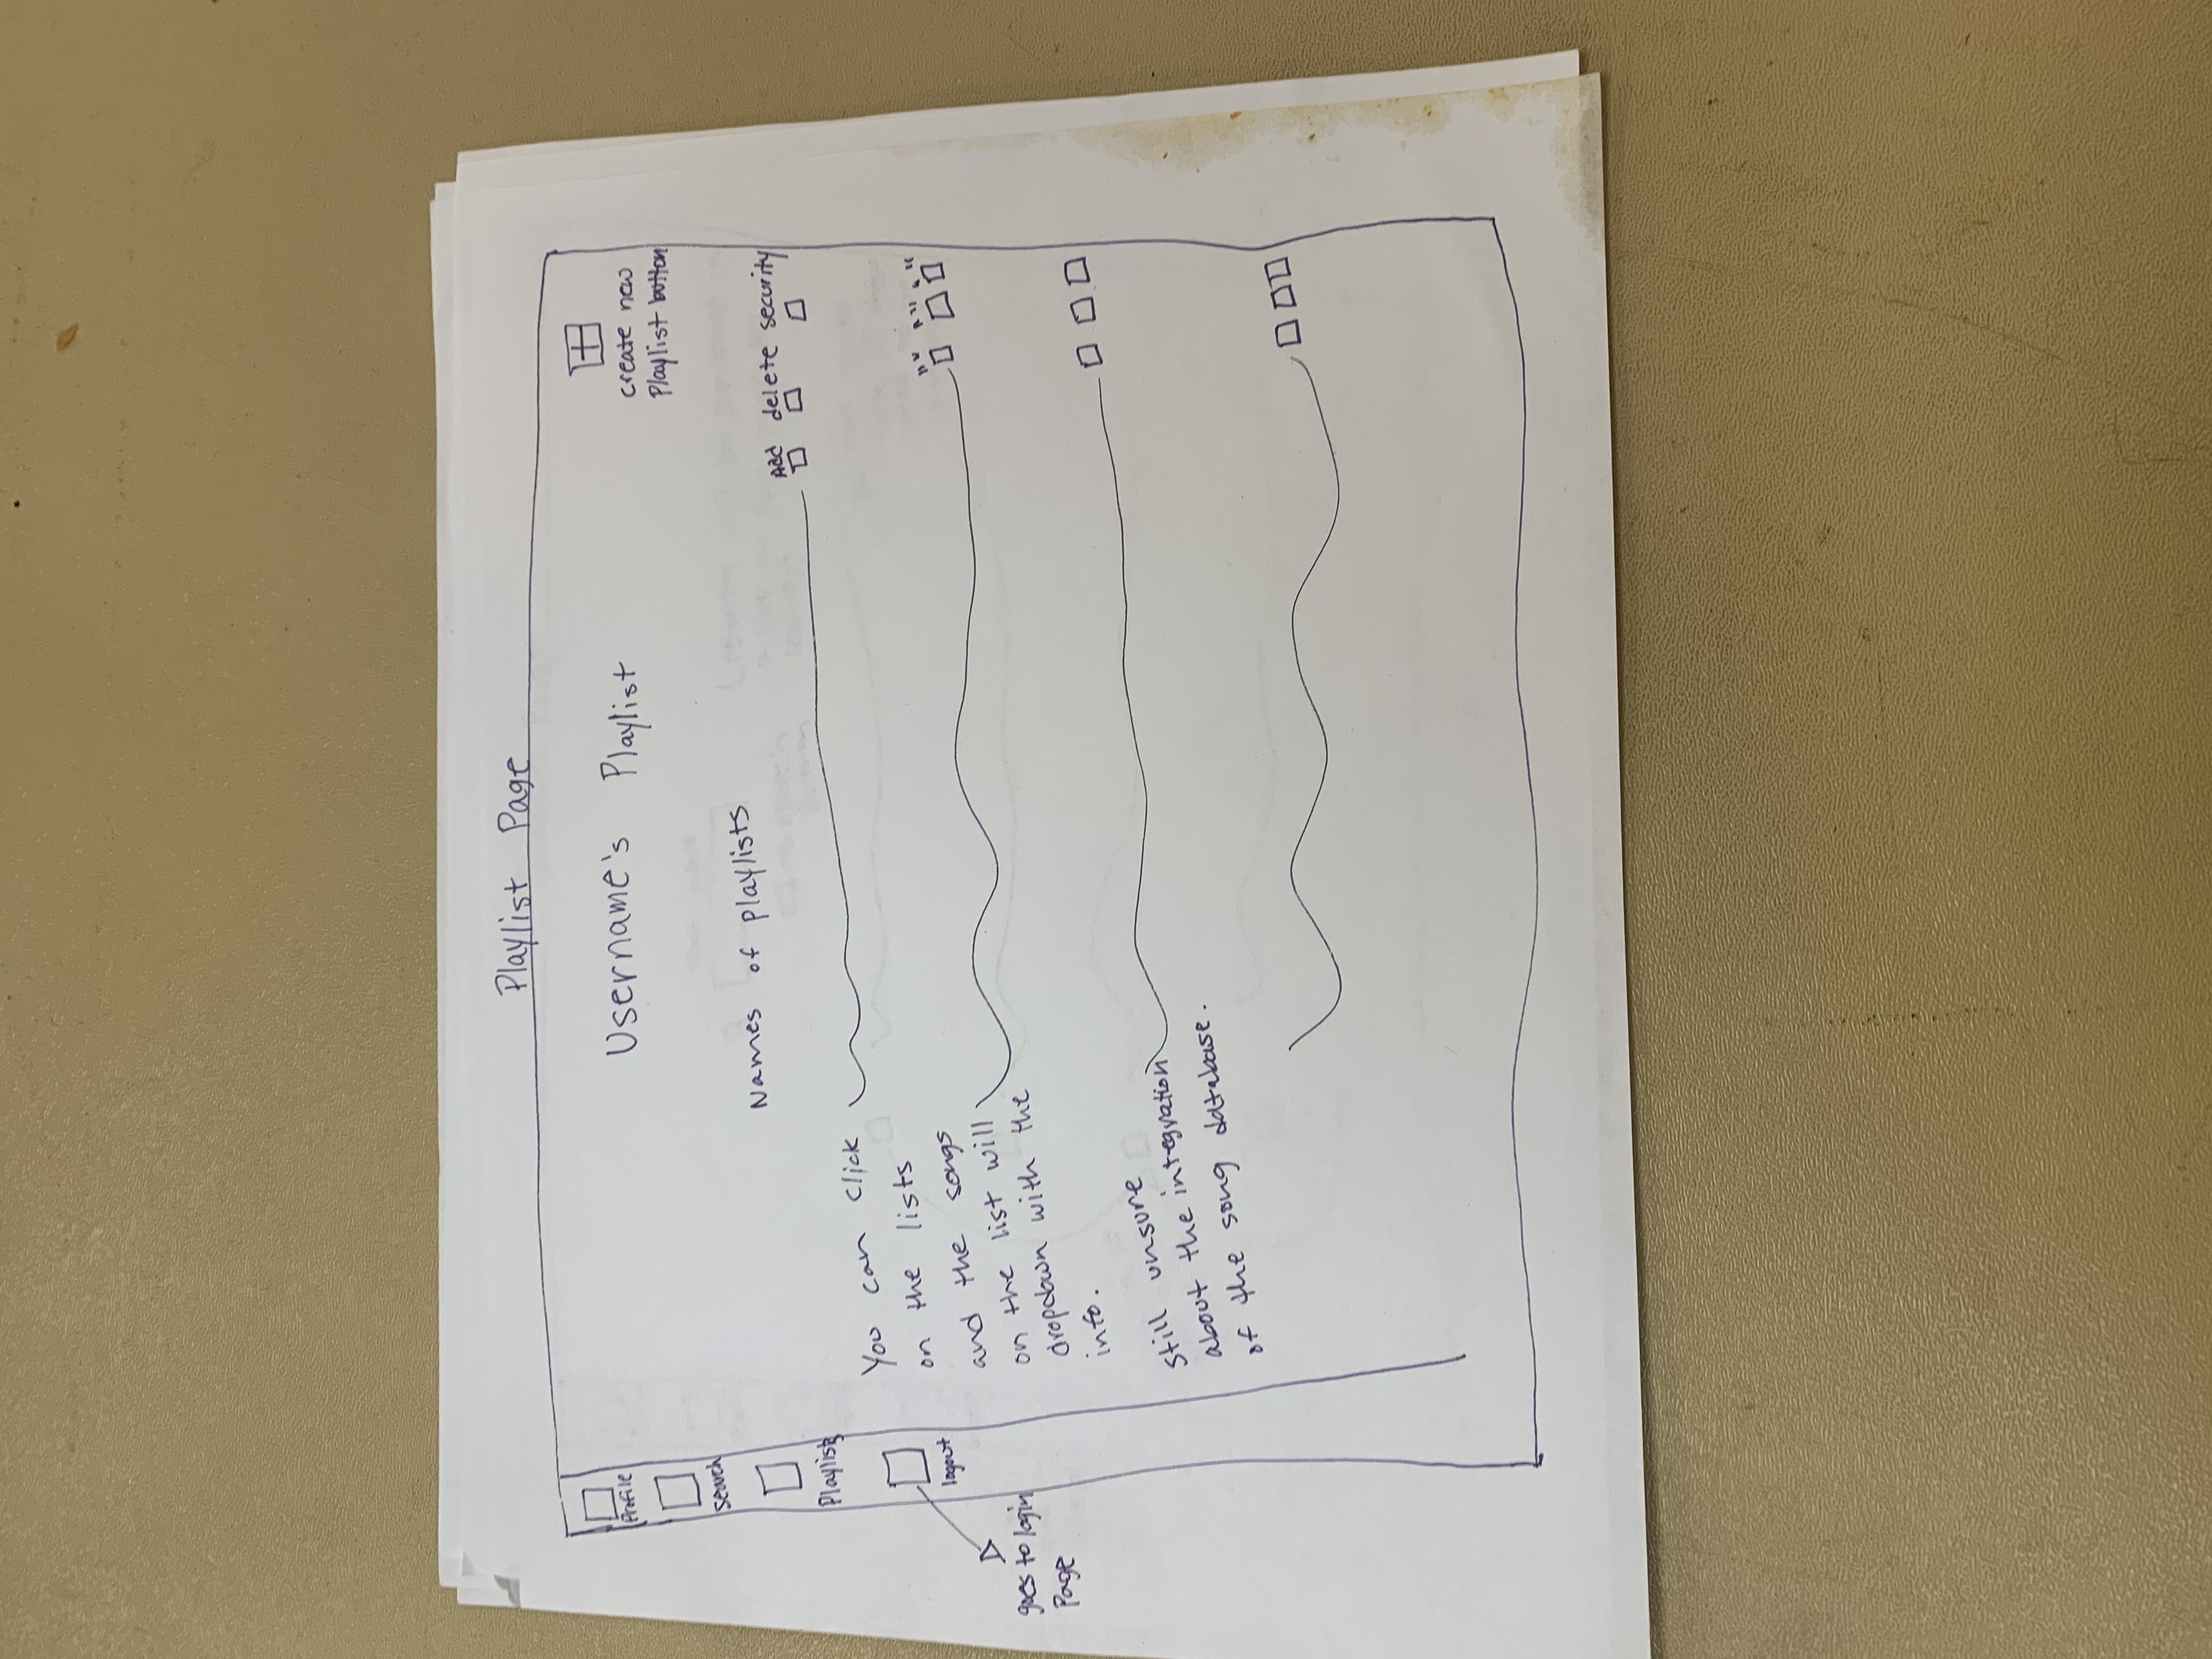 Playlist Page
Profile
Search
Playlists
logout
goes to login
Page
Username's Playlist
create new
Playlist button
Names of playlists
Add delete security
You can click
on the lists
and the songs
on the list will
dropdown with the
info.
Still unsure
about the integration
of the song database.
" " " " " "